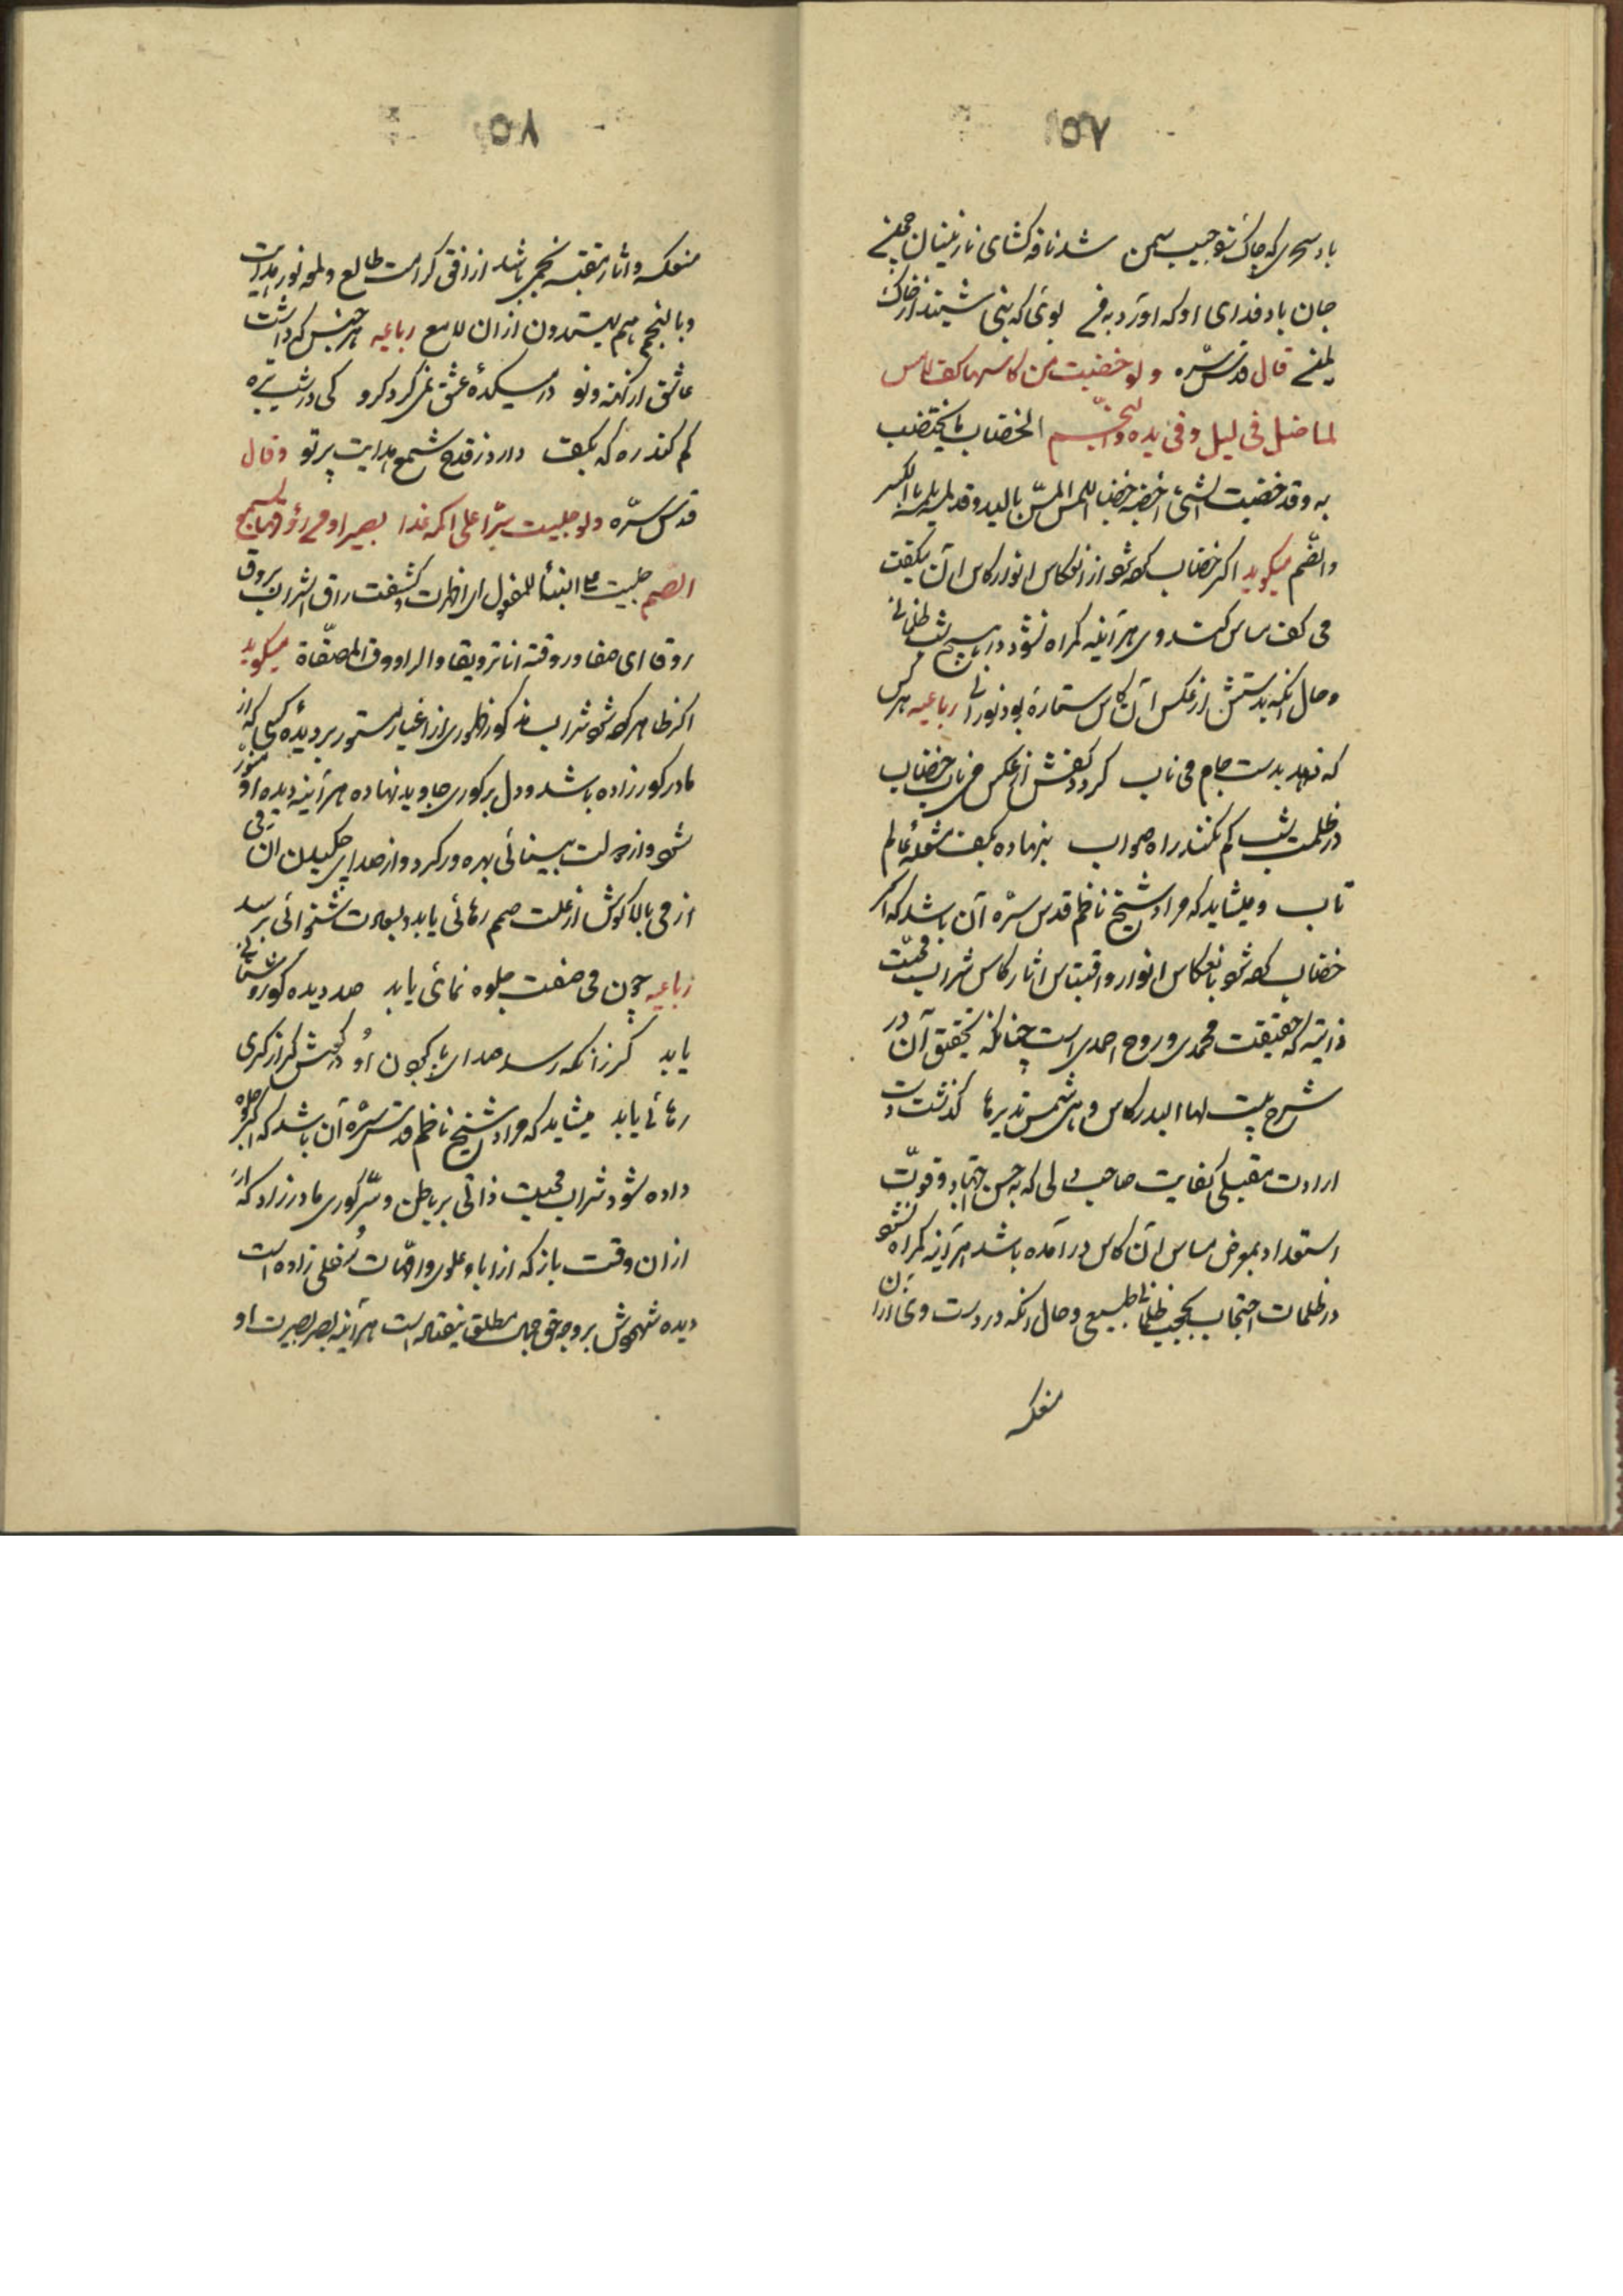 ٥٧
باد سحری که چاک تو جیب سمن شد نافه کشای نازنینان چمنی
جان باد فدای او که اورد به فی بوئی که نبی شنید از خاک
یمنی قال قدس سرّه ولو خضبت من کاسها کف لامس
لما ضل فی لیل و فی یده النجم الخضاب ما یختضب
به وقد خضبت الشئ اخضبه خضبا اللمس المسّ بالید وقد لمسه یلمسه بالکسر
والضّم میکوید اکر خضاب کرده شود از انعکاس انوار کاس آن یکفت
می کف مساس کننده وی هر آینه کمراه نشود در هیچ شب ظلمانی
و حال آنکه بدستش از عکس آن کاس ستارهٔ بود نورانی رباعیه هر کس
که نهد بدست جام می ناب کردد کفش از عکس می ناب خضاب
در ظلمت شب کم نکند راه صواب بنهاده بکف مشعلهٔ عالم
تاب و میشاید که مراد شیخ ناظم قدس سرّه آن باشد که اکر
خضاب کرده شود بانعکاس انوار و اقتباس اثار کاس شراب محبّت
ذاتیه که حقیقت محمدی و روح احمدی است چنانکه تحقیق آن در
شرح بیت لها البدر کاس و هی شمس یدیرها کذشت دست
ارادت مقبلی کفایت صاحب دلی که به حسن اجتهاد و قوّت
استعداد بمعرض مساس آن کاس در آمده باشد هر آینه کمراه نشود
در ظلمات احتجاب بحجب ظلمانی طبیعی و حال آنکه در دست وی ازان
منعکسه
٥٨
منعکسه و اثار مقتبسه نجمی باشد از افق کرامت طالع و لمعه نور هدایت
و بالنجم هم یهتدون ازان لامع رباعیه هر جنس که داشت
عاشق از کهنه و نو در میکدهٔ عشق نمی کرد کرو کی در شب تیره
کم کند ره که بکف دارد ز قدح شمع هدایت پرتو وقال
قدس سرّه ولو جلیت سرّا علی اکمه غدا بصیرا و من راووقها تسمع
الصّم جلیت علی البناء للمفعول ای اظهرت و کشفت راق الشراب یروق
روقا ای صفا و روقته انا ترویقا والراووق المصفّاة میکوید
اکر ظاهر کرده شود شراب مذکور ظهوری از اغیار مستور بر دیدهٔ کسی که از
مادر کور زاده باشد و دل بر کوری جاوید نهاده هر آینه دیده او منوّر
شود و از دولت بینائی بهره ور کردد و از صدای چکیدن آن می
از می پالا کوش از علت صمم رهائی یابد و بسعادت شنوائی برسد
رباعیه چون می صفت جلوه نمائی یابد صد دیده کور روشنائی
یابد کر زانکه رسد صدای پاکون او در کوش کر از کری
رهائی یابد میشاید که مراد شیخ ناظم قدس سرّه آن باشد که اکر جلوه
داده شود شراب محبت ذاتی بر باطن و سّر کوری مادرزاد که از
ازان وقت باز که از اباء علوی و امّهات سُفلی زاده است
دیده شهودش بر وجه حق جمیل مطلق نیفتاده است هر آینه بصر بصیرت او